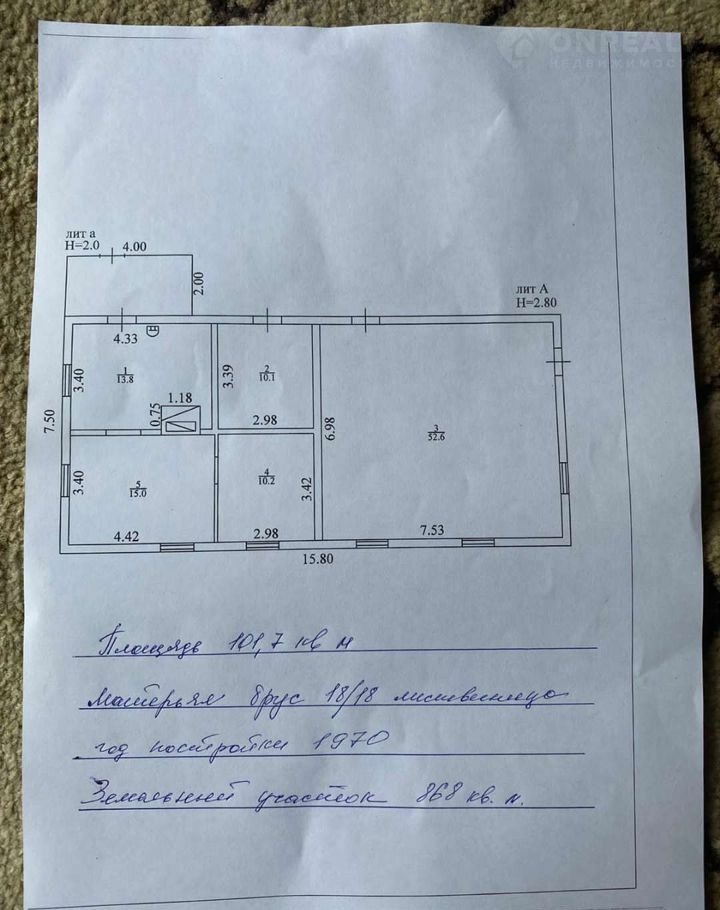 ONREAL
НЕДВИЖИМОС
лит а
Н=2.0 4.00
2.00
лит А
Н=2.80
4.33
1
13.8
3.40
3.39
2
10.1
2.98
1.18
0.75
7.50
6.98
3
52.6
3.40
5
15.0
4.42
4
10.2
3.42
2.98
7.53
15.80
Площядь 101,7 кв м
Матерьял брус 18/18 лиственница
год постройки 1970
Земальный участок 868 кв. м.